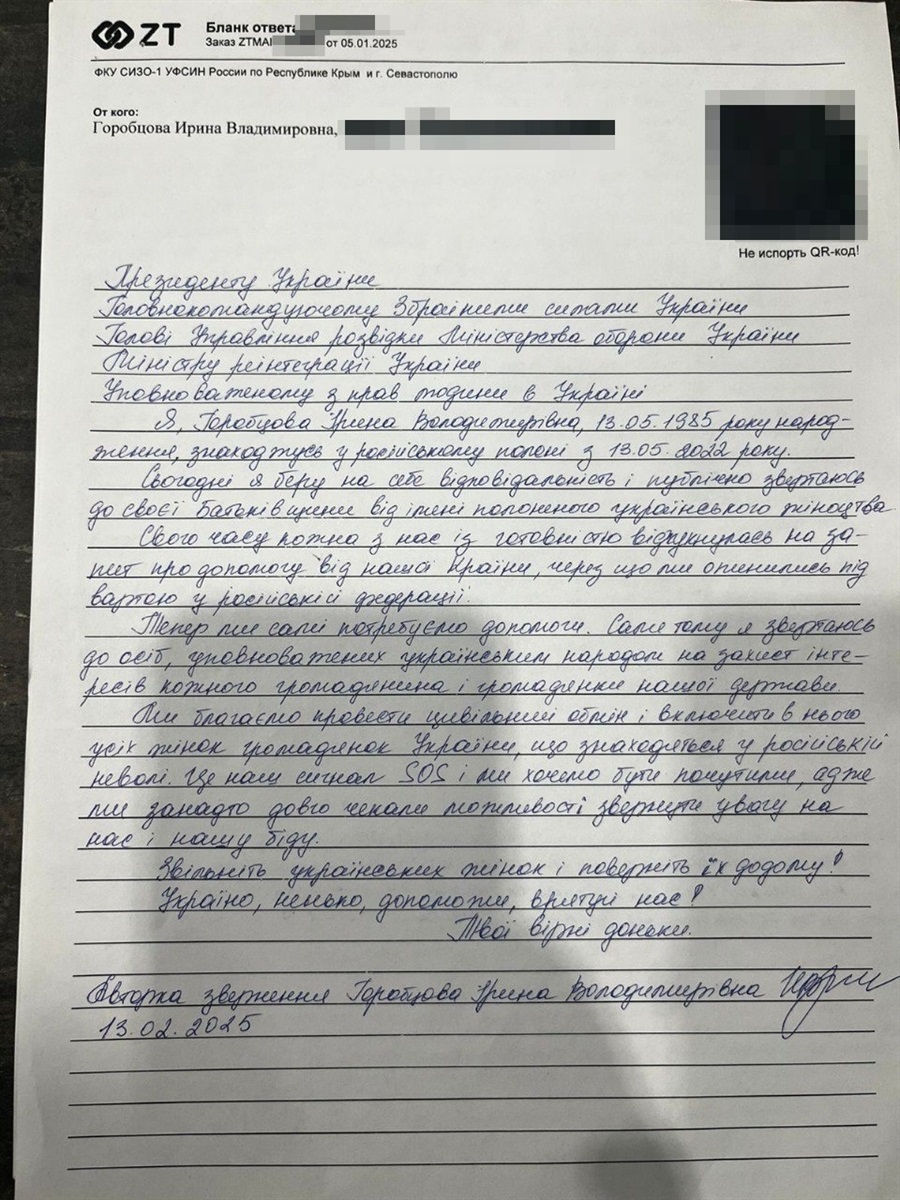 ZT
Бланк ответа
Заказ ZTMAI от 05.01.2025
ФКУ СИЗО-1 УФСИН России по Республике Крым и г. Севастополю
От кого:
Горобцова Ирина Владимировна,
Не испорть QR-код!
Президенту України
Головнокомандуючому Збройними силами України
Голові Управління розвідки Міністерства оборони України
Міністру реінтеграції України
Уповноваженому з прав людини в Україні
Я, Горобцова Ірина Володимирівна, 13.05.1985 року народ-
ження, знаходжусь у російському полоні з 13.05.2022 року.
Сьогодні я беру на себе відповідальність і публічно звертаюсь
до своєї Батьківщини від імені полоненого українського жіноцтва.
Свого часу кожна з нас із готовністю відгукнулась на за-
пит про допомогу від нашої Країни, через що ми опинились під
вартою у російській федерації.
Тепер ми самі потребуємо допомоги. Саме тому я звертаюсь
до осіб, уповноважених українським народом на захист інте-
ресів кожного громадянина і громадянки нашої держави.
Ми благаємо провести цивільний обмін і включити в нього
усіх жінок громадянок України, що знаходяться у російській
неволі. Це наш сигнал SOS і ми хочемо бути почутими, адже
ми занадто довго чекали можливості звернути увагу на
нас і нашу біду.
Звільніть українських жінок і поверніть їх додому!
Україно, ненько, допоможи, врятуй нас!
Твої вірні доньки.
Авторка звернення Горобцова Ірина Володимирівна
13.02.2025